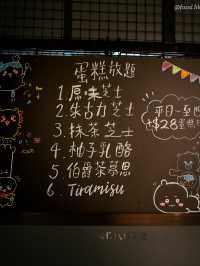 蛋糕放題
1. 原味芝士
2. 朱古力芝士
3. 抹茶芝士
4. 柚子乳酪
5. 伯爵茶慕思
6. Tiramisu
平日-至四
+$28蛋糕